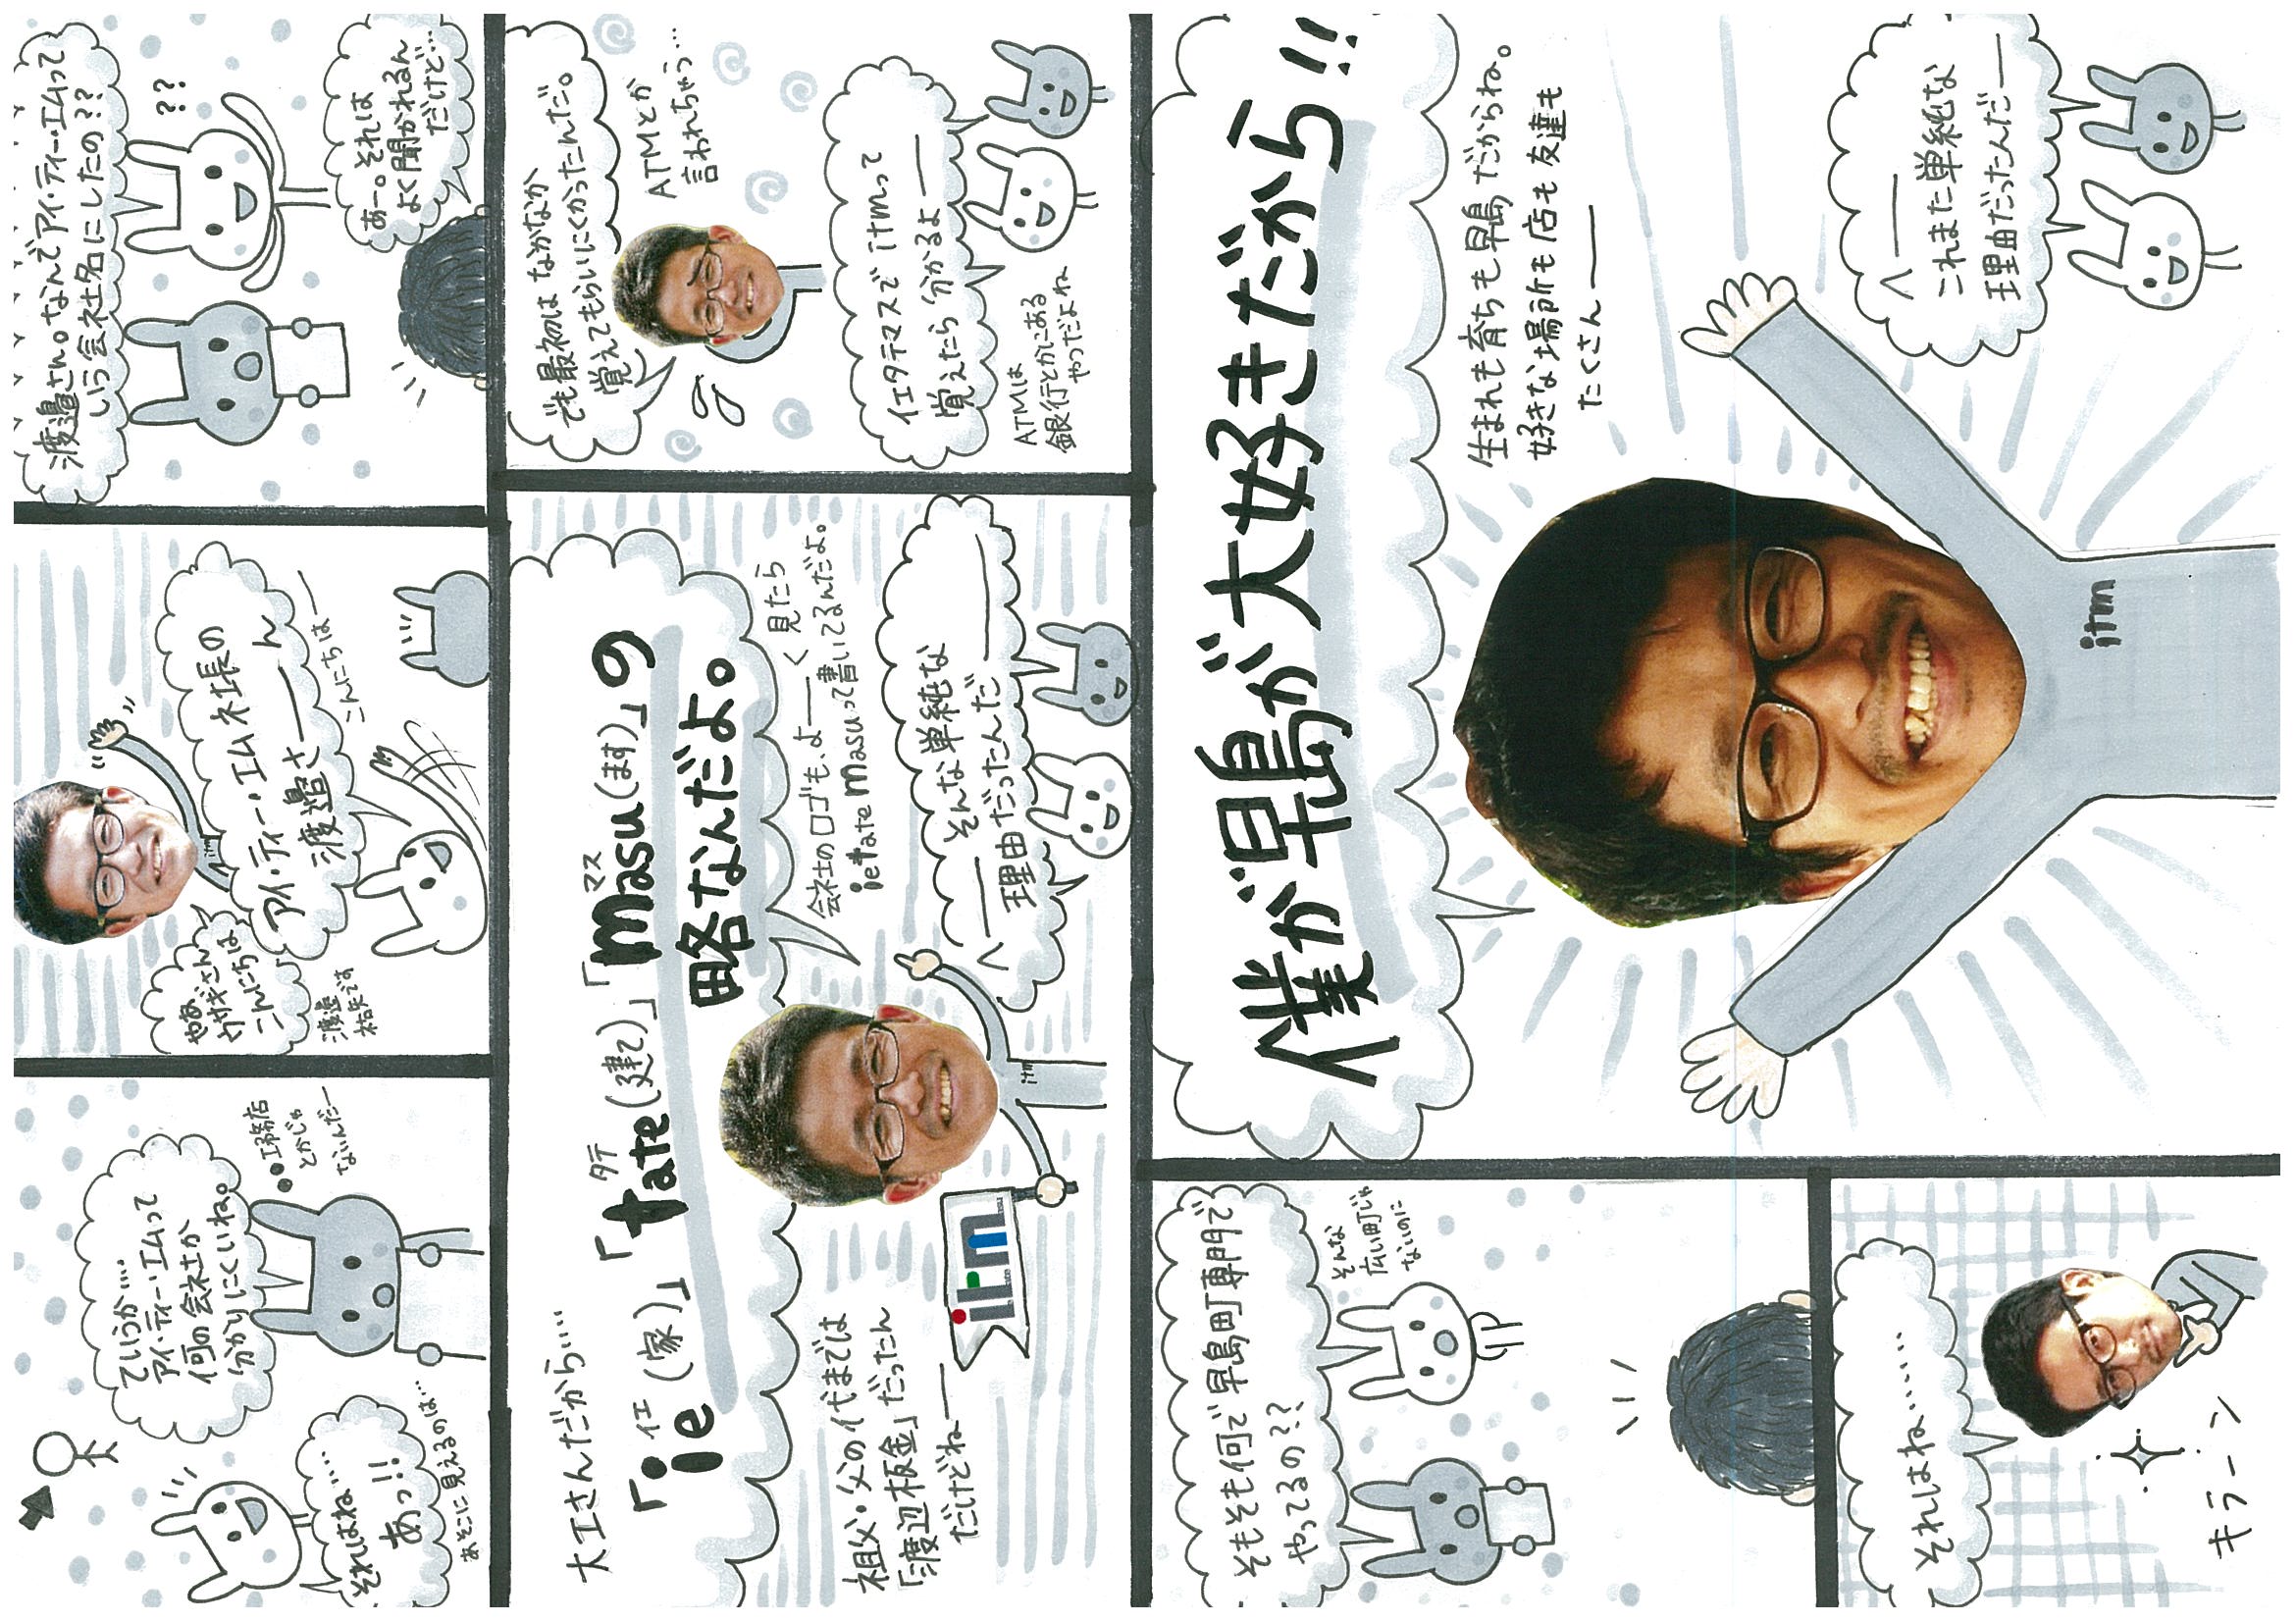 ていうか…
アイ・ティー・エムって
何の会社か
分かりにくいね。
●●工務店
とかじゃ
ないんだー
それはね……
あっ!!
あそこに見えるのは…
やあ
ウサギさん
こんにちは
渡邉
祐矢です
アイ・ティー・エム社長の
渡邉さーーん
こんにちはー
itm
渡邉さん。なんでアイ・ティー・エムって
いう会社名にしたの???
??
あー。それは
よく聞かれるん
だけど…
大工さんだから…
「ie(家)」「tate(建て)」「masu(ます)」の
イエ
タテ
マス
略なんだよ。
祖父・父の代までは
「渡辺板金」だったん
だけどねー
itm
itm
会社のロゴも、よーく見たら
ietatemasuって書いてるんだよ。
へーーそんな単純な
理由だったんだーー
でも最初は なかなか
覚えてもらいにくかったんだ。
ATMとか
言われちゃう…
イエタテマスでitmって
覚えたら分かるよー
ATMは
銀行とかにある
やつだよね
そもそも何で早島町専門で
やってるの???
そんな
広い町じゃ
ないのに
それはね……
キラーン
僕が早島が大好きだから!!
生まれも育ちも早島だからね。
好きな場所も店も友達も
たくさんーー
itm
へー
これまた単純な
理由だったんだー